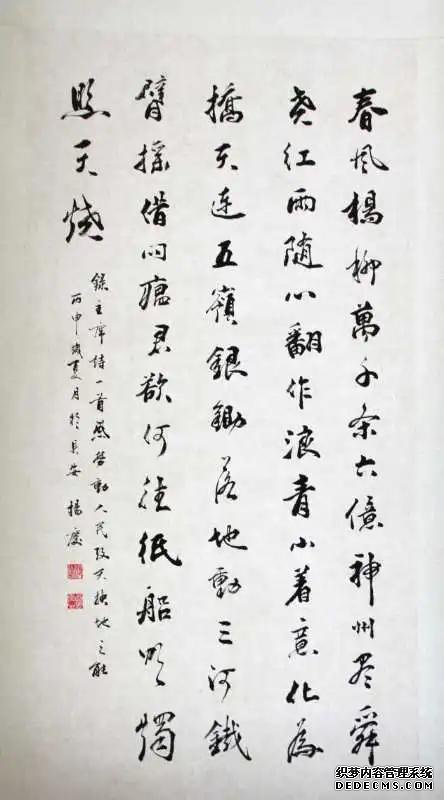 春風楊柳萬千条六億神州尽舜
尧红雨随心翻作浪青山着意化為
橋天连五嶺銀鋤落地動三河鐵
臂摇借问瘟君欲何往纸船明燭
照天烧
錄主席诗一首感劳動人民改天換地之能
丙申歲夏月於長安 楊慶
织梦内容管理系统
DEDECMS.COM